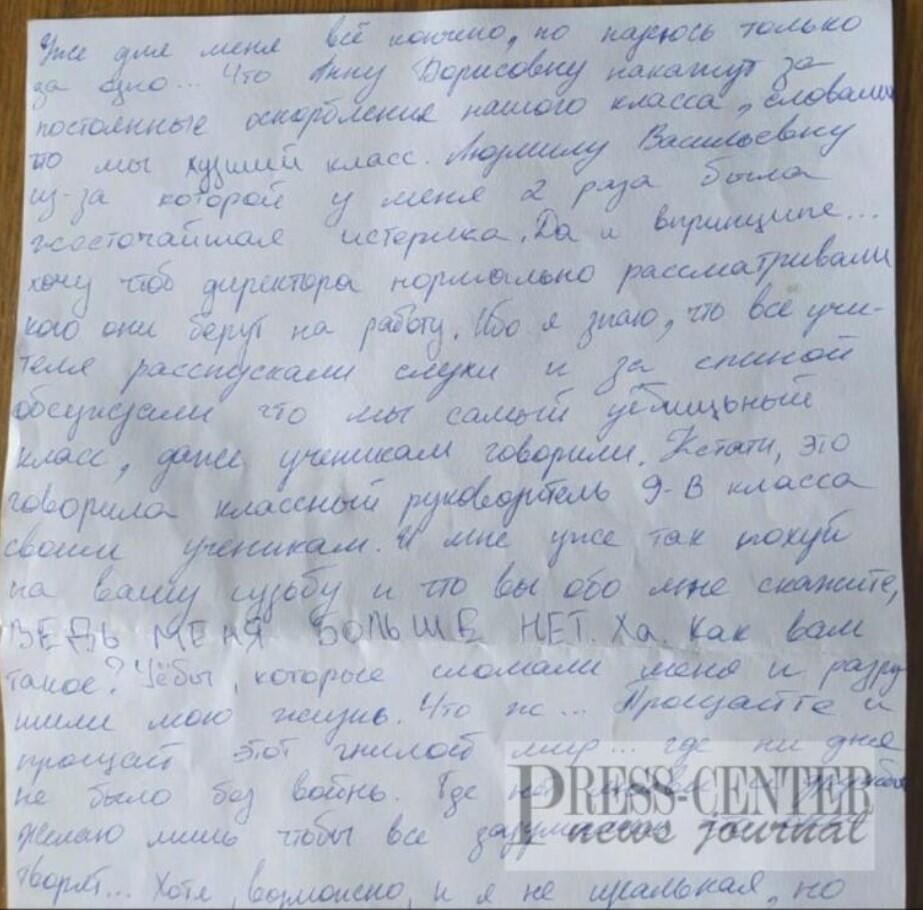 Уже для меня всё кончено, но надеюсь только
за одно... Что Анну Борисовну накажут за
постоянные оскорбления нашого класса, словами
что мы худший класс. Людмилу Васильевну
из-за которой у меня 2 раза была
жосточайшая истерика. Да и впринципе...
хочу чтоб директора нормально рассматривали
кого они берут на работу. Ибо я знаю, что все учи-
теля расспускали слухи и за спиной
обсуждали что мы самый ублюдный
класс, даже ученикам говорили. Кстати, это
говорила классный руководитель 9-В класса
своим ученикам. И мне уже так похуй
на вашу судьбу и что вы обо мне скажите,
ВЕДЬ МЕНЯ БОЛЬШЕ НЕТ. Ха. Как вам
такое? Уёбы, которые сломали меня и разру
шили мою жизнь. Что ж... Прощайте и
прощай этот гнилой мир... где ни дня
не было без войны. Где
желаю лишь чтобы все
творят... Хотя, возможно, и я не идеальная, но
PRESS-CENTER
news journal